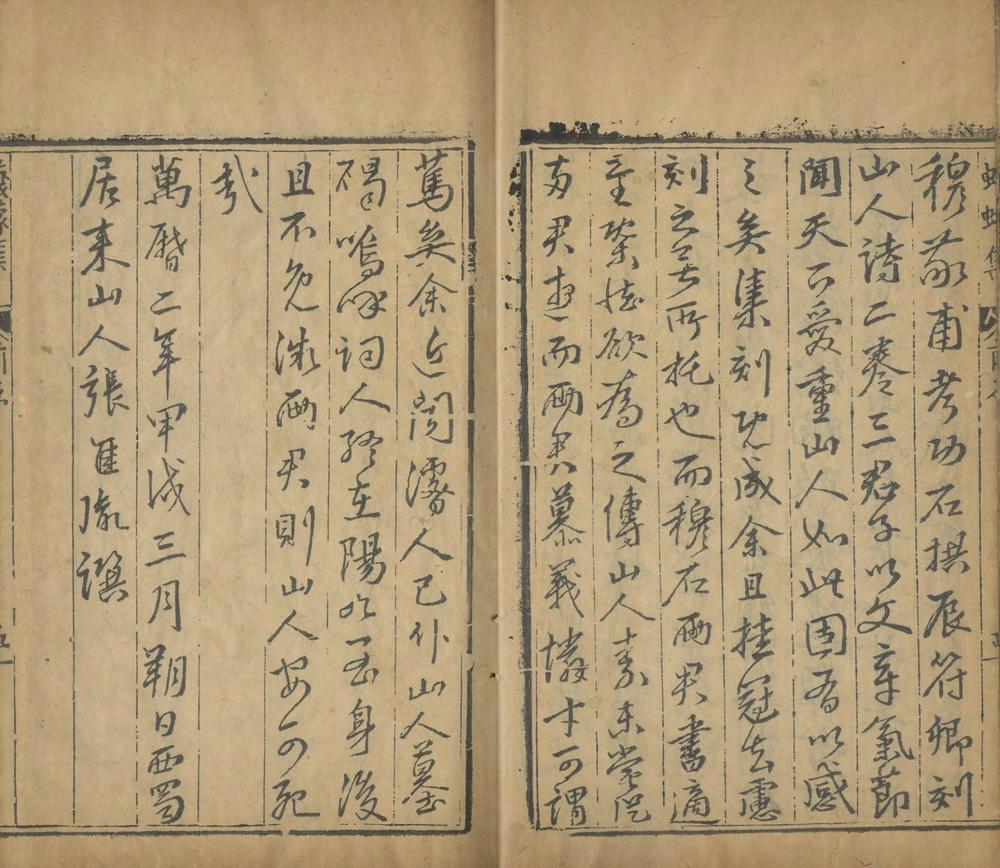 穆敬甫考功石拱辰符卿刻
山人詩二卷三君子以文章氣節
聞天下愛重山人如此固有以感
之矣集刻既成余且挂冠去慮
刻之無所托也而穆石兩君書適
至欲為之傳山人素未嘗從
兩君遊而兩君慕義憐才可謂
篤矣余近聞濬人已仆山人墓
碣嗚呼詞人在陽九身後
且不免微兩君則山人安可死
哉
萬曆二年甲戌三月朔日西蜀
居來山人張佳胤譔